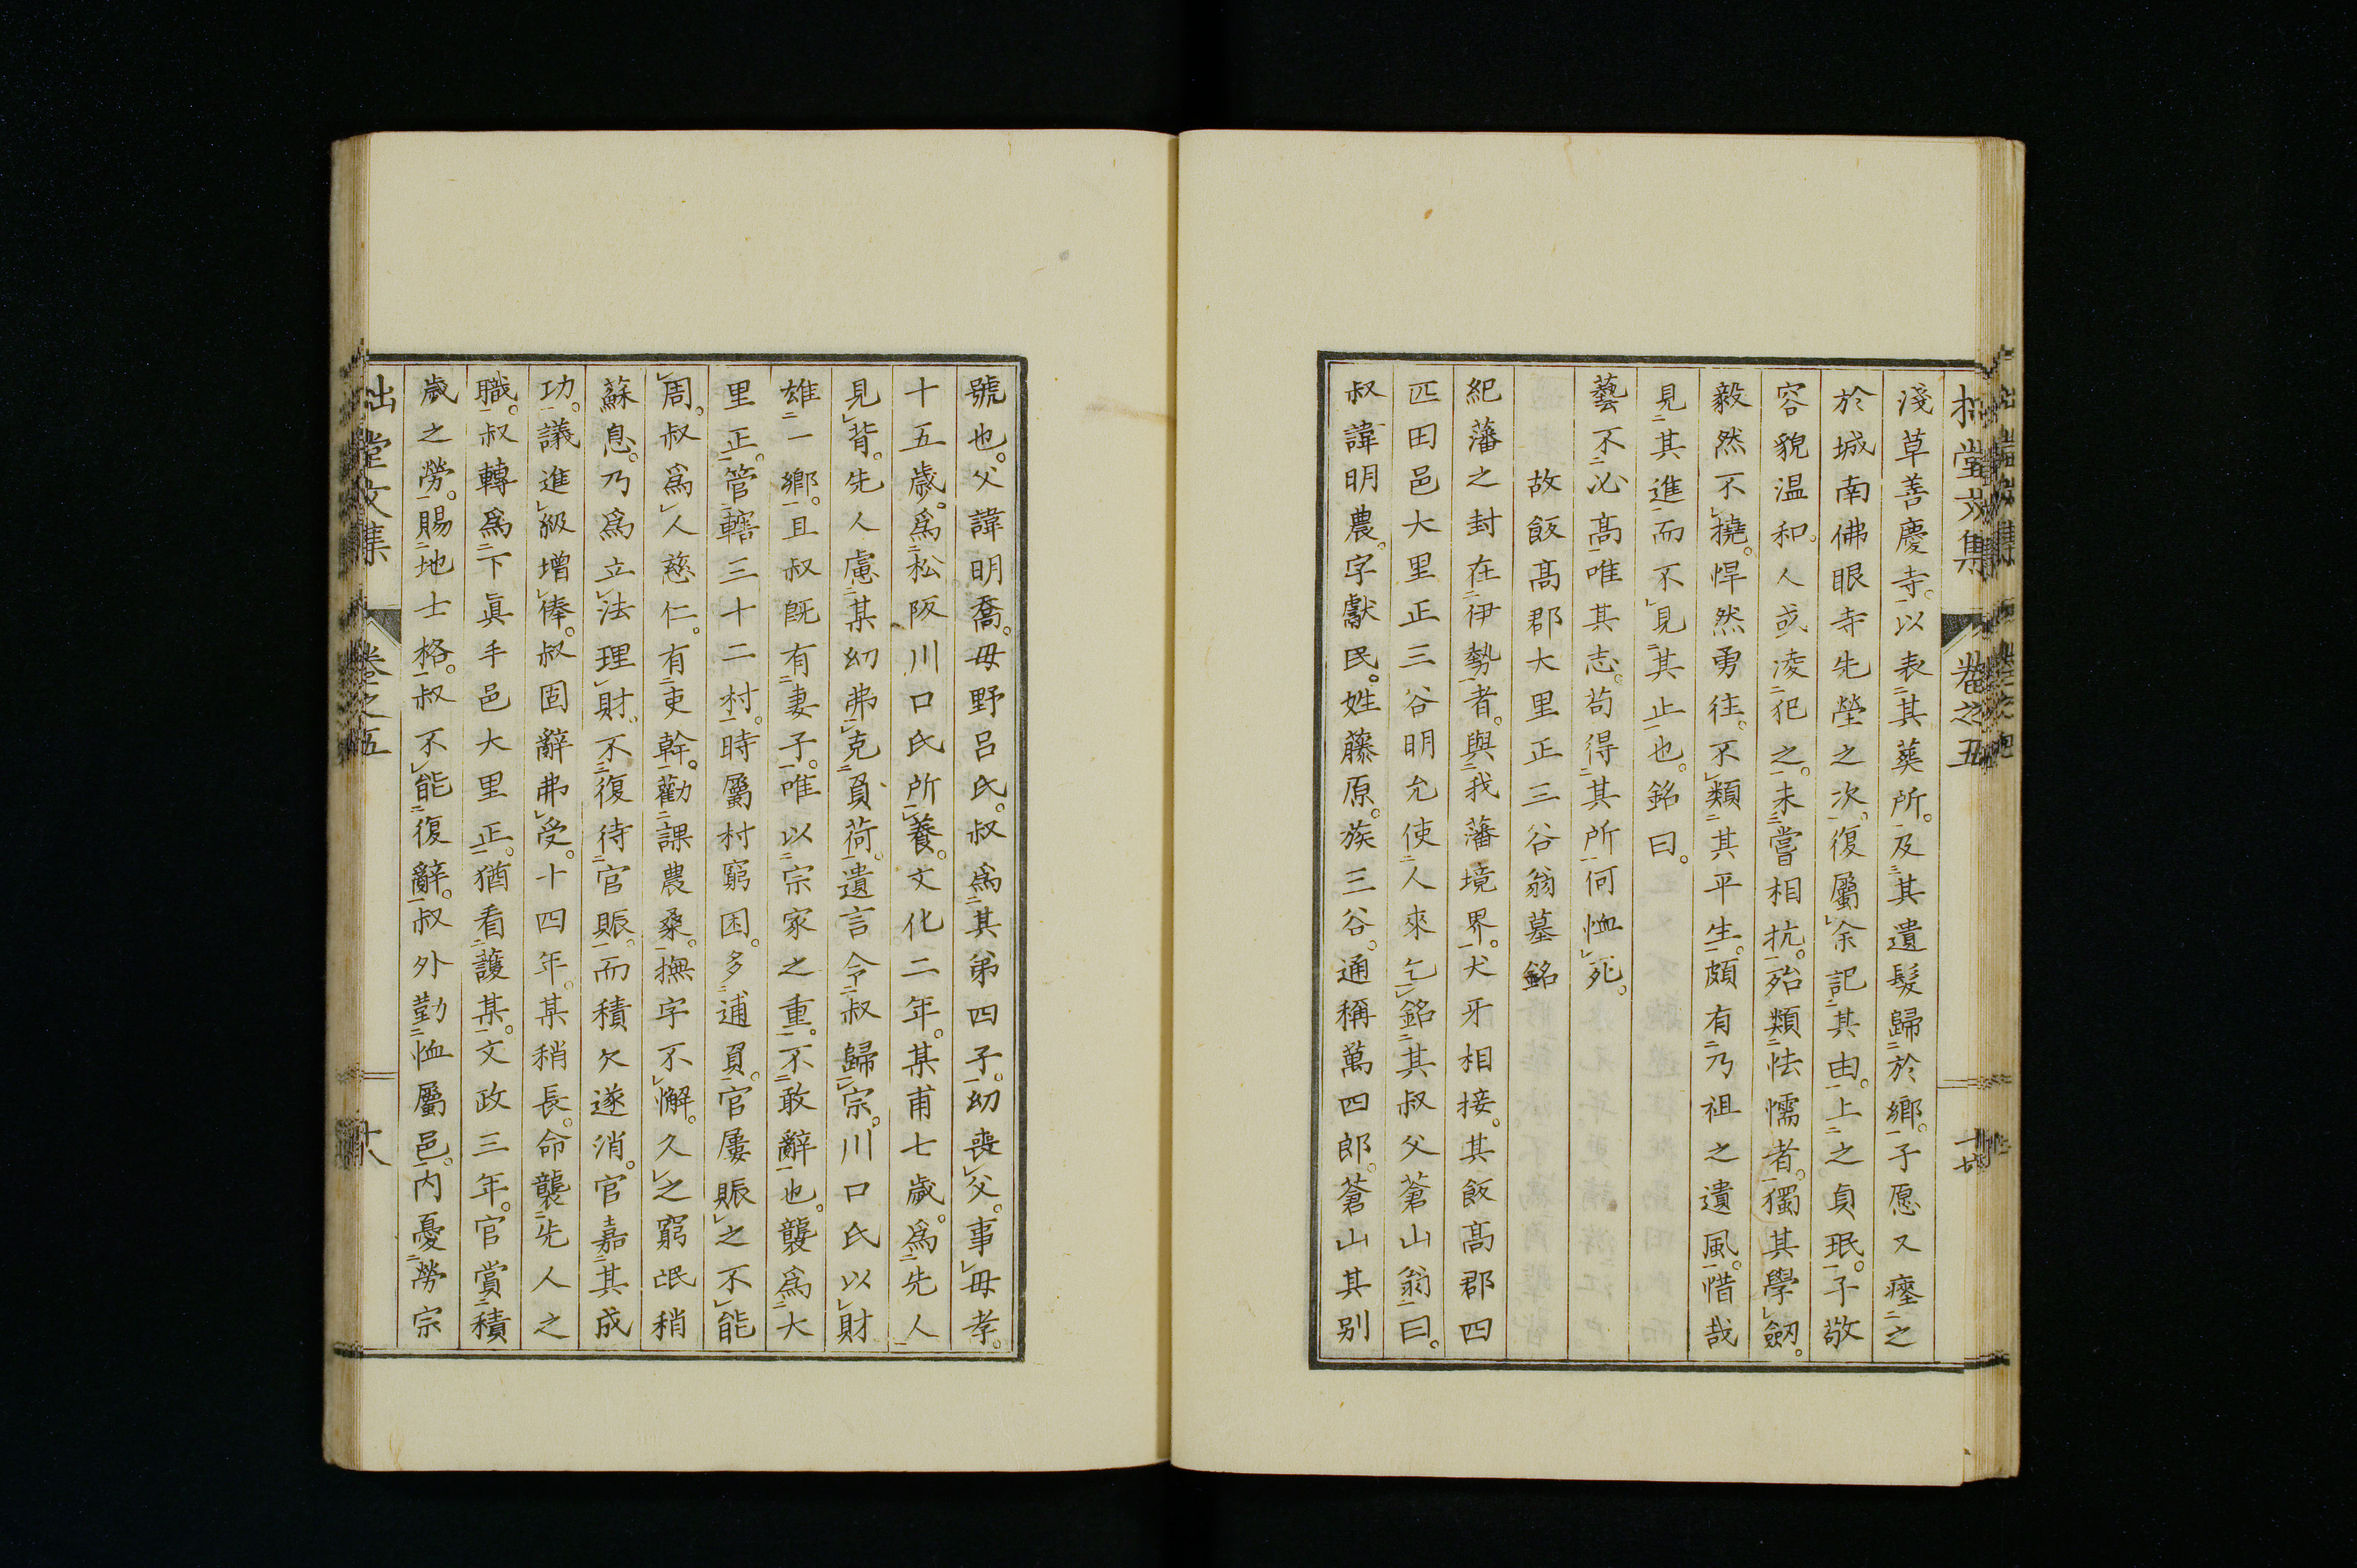 淺草善慶寺。以表其葬所。及其遺髮歸於鄉。子愿又瘞之
於城南佛眼寺先塋之次。復屬余記其由。上之貞珉。子敬
容貌温和。人或淩犯之。未嘗相抗。殆類怯懦者。獨其學劒。
毅然不撓。悍然勇往。不類其平生。頗有乃祖之遺風。惜哉
見其進而不見其止也。銘曰。
藝不必高。唯其志。苟得其所。何恤死。
故飯高郡大里正三谷翁墓銘
紀藩之封在伊勢者。與我藩境界。犬牙相接。其飯高郡四
匹田邑大里正三谷明允使人來乞銘其叔父蒼山翁曰。
叔諱明農。字獻民。姓藤原。族三谷。通稱萬四郎。蒼山其別
號也。父諱明喬。毋野呂氏。叔爲其弟四子。幼喪父。事毋孝。
十五歲。爲松阪川口氏所養。文化二年。某甫七歲。爲先人
見背。先人慮某幼弗克負荷。遺言令叔歸宗。川口氏以財
雄一鄉。且叔既有妻子。唯以宗家之重。不敢辭也。襲爲大
里正。管轄三十二村。時屬村窮困。多逋負。官屢賑之不能
周。叔爲人慈仁。有吏幹。勸課農桑。撫字不懈。久之窮氓稍
蘇息。乃爲立法理財。不復待官賑。而積欠遂消。官嘉其成
功。議進級增俸。叔固辭弗受。十四年。某稍長。命襲先人之
職。叔轉爲下眞手邑大里正。猶看護某。文政三年。官賞積
歲之勞。賜地士格。叔不能復辭。叔外勤恤屬邑。內憂勞宗
拙堂文集 卷之五 十八